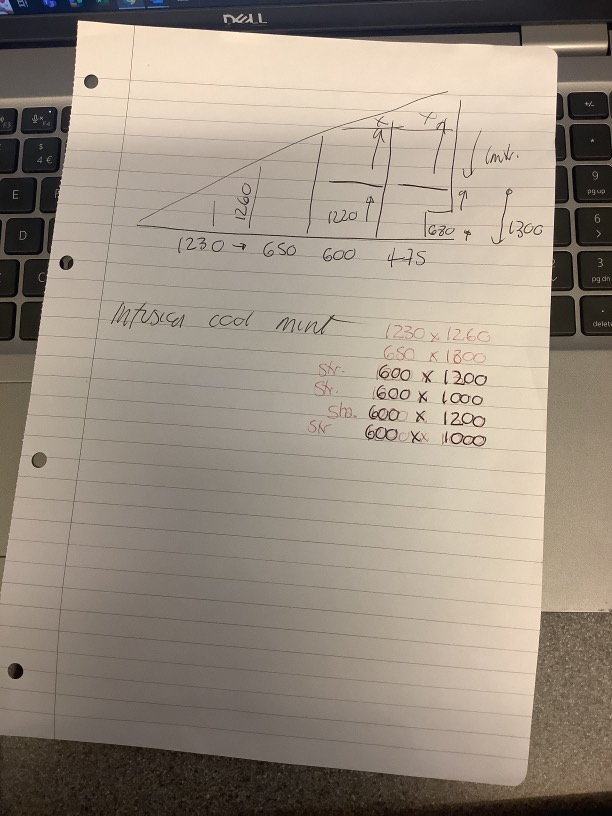 DELL
x x
1mtr.
1260
1220
680
1300
1230 → 650 600 475
Infusion cool mint
1230 x 1260
650 x 1800
Str. 600 x 1200
Str. 600 x 1000
600 x 1200
Str 600 x 1000
F3
$
4 €
E
D
C
+/-
*
9
pg up
6
>
3
pg dn
delete